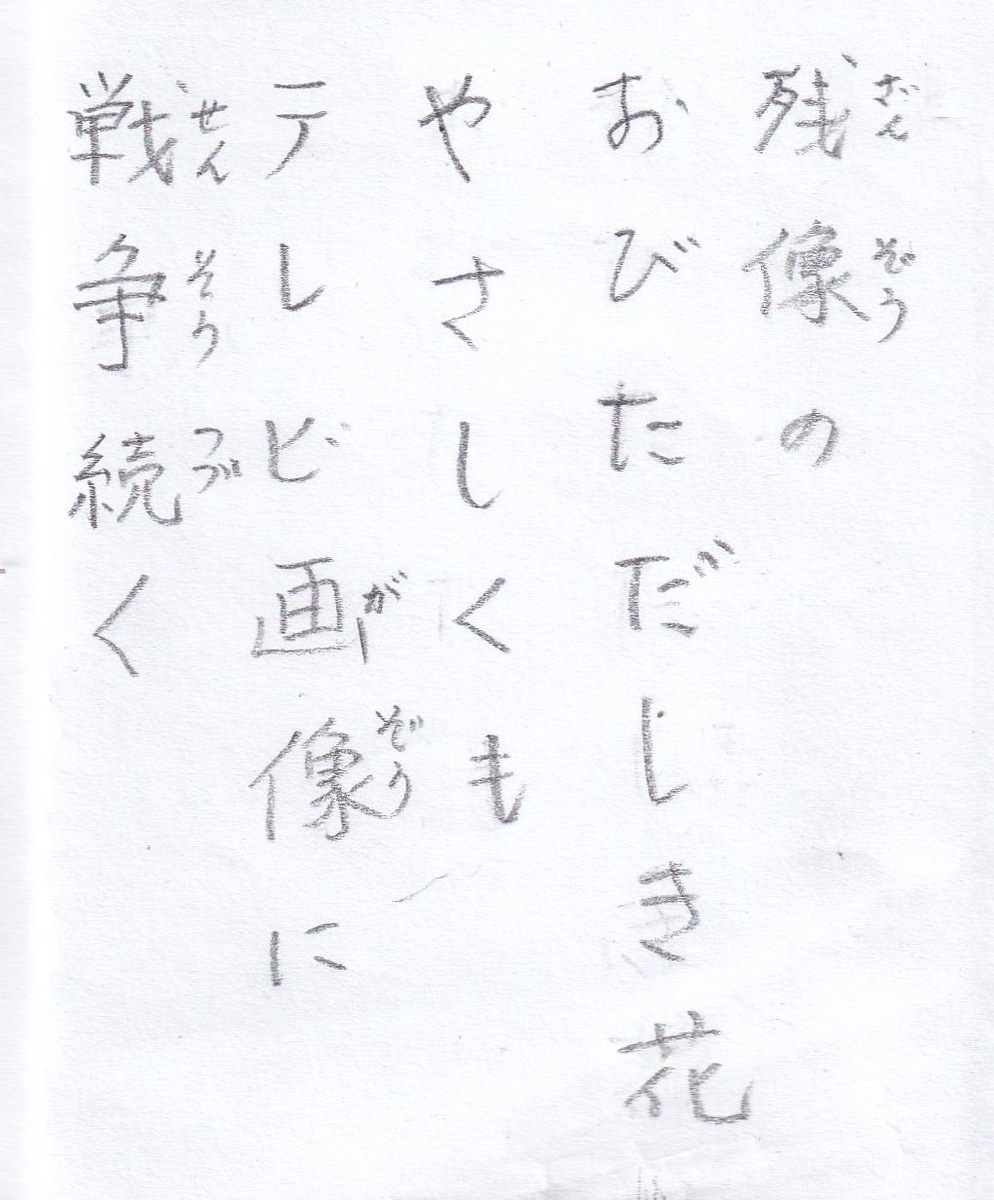 ざんぞう
残像の
おびただしき花
やさしくも
がぞう
テレビ画像に
せんそうつづ
戦争続く